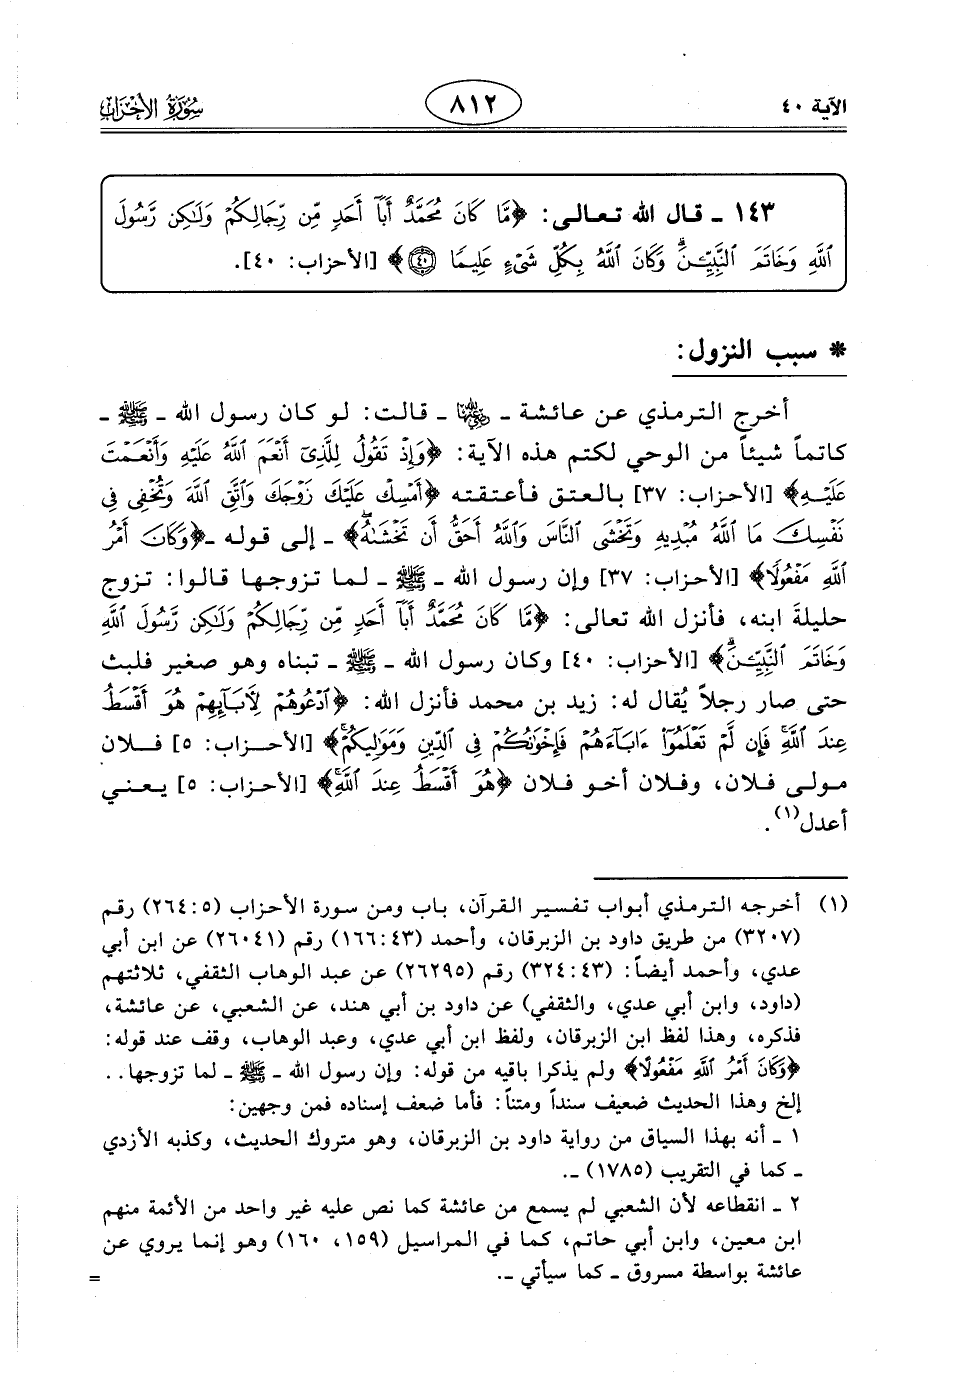 الآية ٤٠
٨١٢
سورة الأحزاب
١٤٣ ـ قال الله تعالى: ﴿مَّا كَانَ مُحَمَّدٌ أَبَآ أَحَدٍ مِّن رِّجَالِكُمْ وَلَٰكِن رَّسُولَ
ٱللَّهِ وَخَاتَمَ ٱلنَّبِيِّـۧنَۗ وَكَانَ ٱللَّهُ بِكُلِّ شَىْءٍ عَلِيمًا ۝٤٠﴾ [الأحزاب: ٤٠].
* سبب النزول:
أخرج الترمذي عن عائشة ـ رضي الله عنها ـ قالت: لو كان رسول الله ـ ﷺ ـ
كاتماً شيئاً من الوحي لكتم هذه الآية: ﴿وَإِذْ تَقُولُ لِلَّذِىٓ أَنْعَمَ ٱللَّهُ عَلَيْهِ وَأَنْعَمْتَ
عَلَيْهِ﴾ [الأحزاب: ٣٧] بالعتق فأعتقته ﴿أَمْسِكْ عَلَيْكَ زَوْجَكَ وَٱتَّقِ ٱللَّهَ وَتُخْفِى فِى
نَفْسِكَ مَا ٱللَّهُ مُبْدِيهِ وَتَخْشَى ٱلنَّاسَ وَٱللَّهُ أَحَقُّ أَن تَخْشَىٰهُۖ﴾ ـ إلى قوله ـ﴿وَكَانَ أَمْرُ
ٱللَّهِ مَفْعُولًا﴾ [الأحزاب: ٣٧] وإن رسول الله ـ ﷺ ـ لما تزوجها قالوا: تزوج
حليلةَ ابنه، فأنزل الله تعالى: ﴿مَّا كَانَ مُحَمَّدٌ أَبَآ أَحَدٍ مِّن رِّجَالِكُمْ وَلَٰكِن رَّسُولَ ٱللَّهِ
وَخَاتَمَ ٱلنَّبِيِّـۧنَۗ﴾ [الأحزاب: ٤٠] وكان رسول الله ـ ﷺ ـ تبناه وهو صغير فلبث
حتى صار رجلاً يُقال له: زيد بن محمد فأنزل الله: ﴿ٱدْعُوهُمْ لِأَبَآئِهِمْ هُوَ أَقْسَطُ
عِندَ ٱللَّهِۚ فَإِن لَّمْ تَعْلَمُوٓا۟ ءَابَآءَهُمْ فَإِخْوَٰنُكُمْ فِى ٱلدِّينِ وَمَوَٰلِيكُمْۚ﴾ [الأحزاب: ٥] فلان
مولى فلان، وفلان أخو فلان ﴿هُوَ أَقْسَطُ عِندَ ٱللَّهِۚ﴾ [الأحزاب: ٥] يعني
أعدل(١).
(١) أخرجه الترمذي أبواب تفسير القرآن، باب ومن سورة الأحزاب (٥: ٢٦٤) رقم
(٣٢٠٧) من طريق داود بن الزبرقان، وأحمد (٤٣: ١٦٦) رقم (٢٦٠٤١) عن ابن أبي
عدي، وأحمد أيضاً: (٤٣: ٣٢٤) رقم (٢٦٢٩٥) عن عبد الوهاب الثقفي، ثلاثتهم
(داود، وابن أبي عدي، والثقفي) عن داود بن أبي هند، عن الشعبي، عن عائشة،
فذكره، وهذا لفظ ابن الزبرقان، ولفظ ابن أبي عدي، وعبد الوهاب، وقف عند قوله:
﴿وَكَانَ أَمْرُ ٱللَّهِ مَفْعُولًا﴾ ولم يذكرا باقيه من قوله: وإن رسول الله ـ ﷺ ـ لما تزوجها..
إلخ وهذا الحديث ضعيف سنداً ومتناً: فأما ضعف إسناده فمن وجهين:
١ ـ أنه بهذا السياق من رواية داود بن الزبرقان، وهو متروك الحديث، وكذبه الأزدي
ـ كما في التقريب (١٧٨٥) ـ.
٢ ـ انقطاعه لأن الشعبي لم يسمع من عائشة كما نص عليه غير واحد من الأئمة منهم
ابن معين، وابن أبي حاتم، كما في المراسيل (١٥٩، ١٦٠) وهو إنما يروي عن
عائشة بواسطة مسروق ـ كما سيأتي ـ.
=